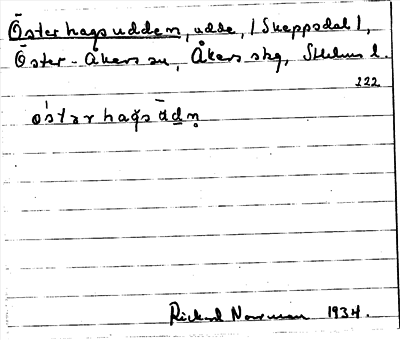 Österhagsudden, udde, (Skeppsdal),
Öster-Åkers sn, Åkers skg, Sthlms l.
222
Rickard Norrman 1934.